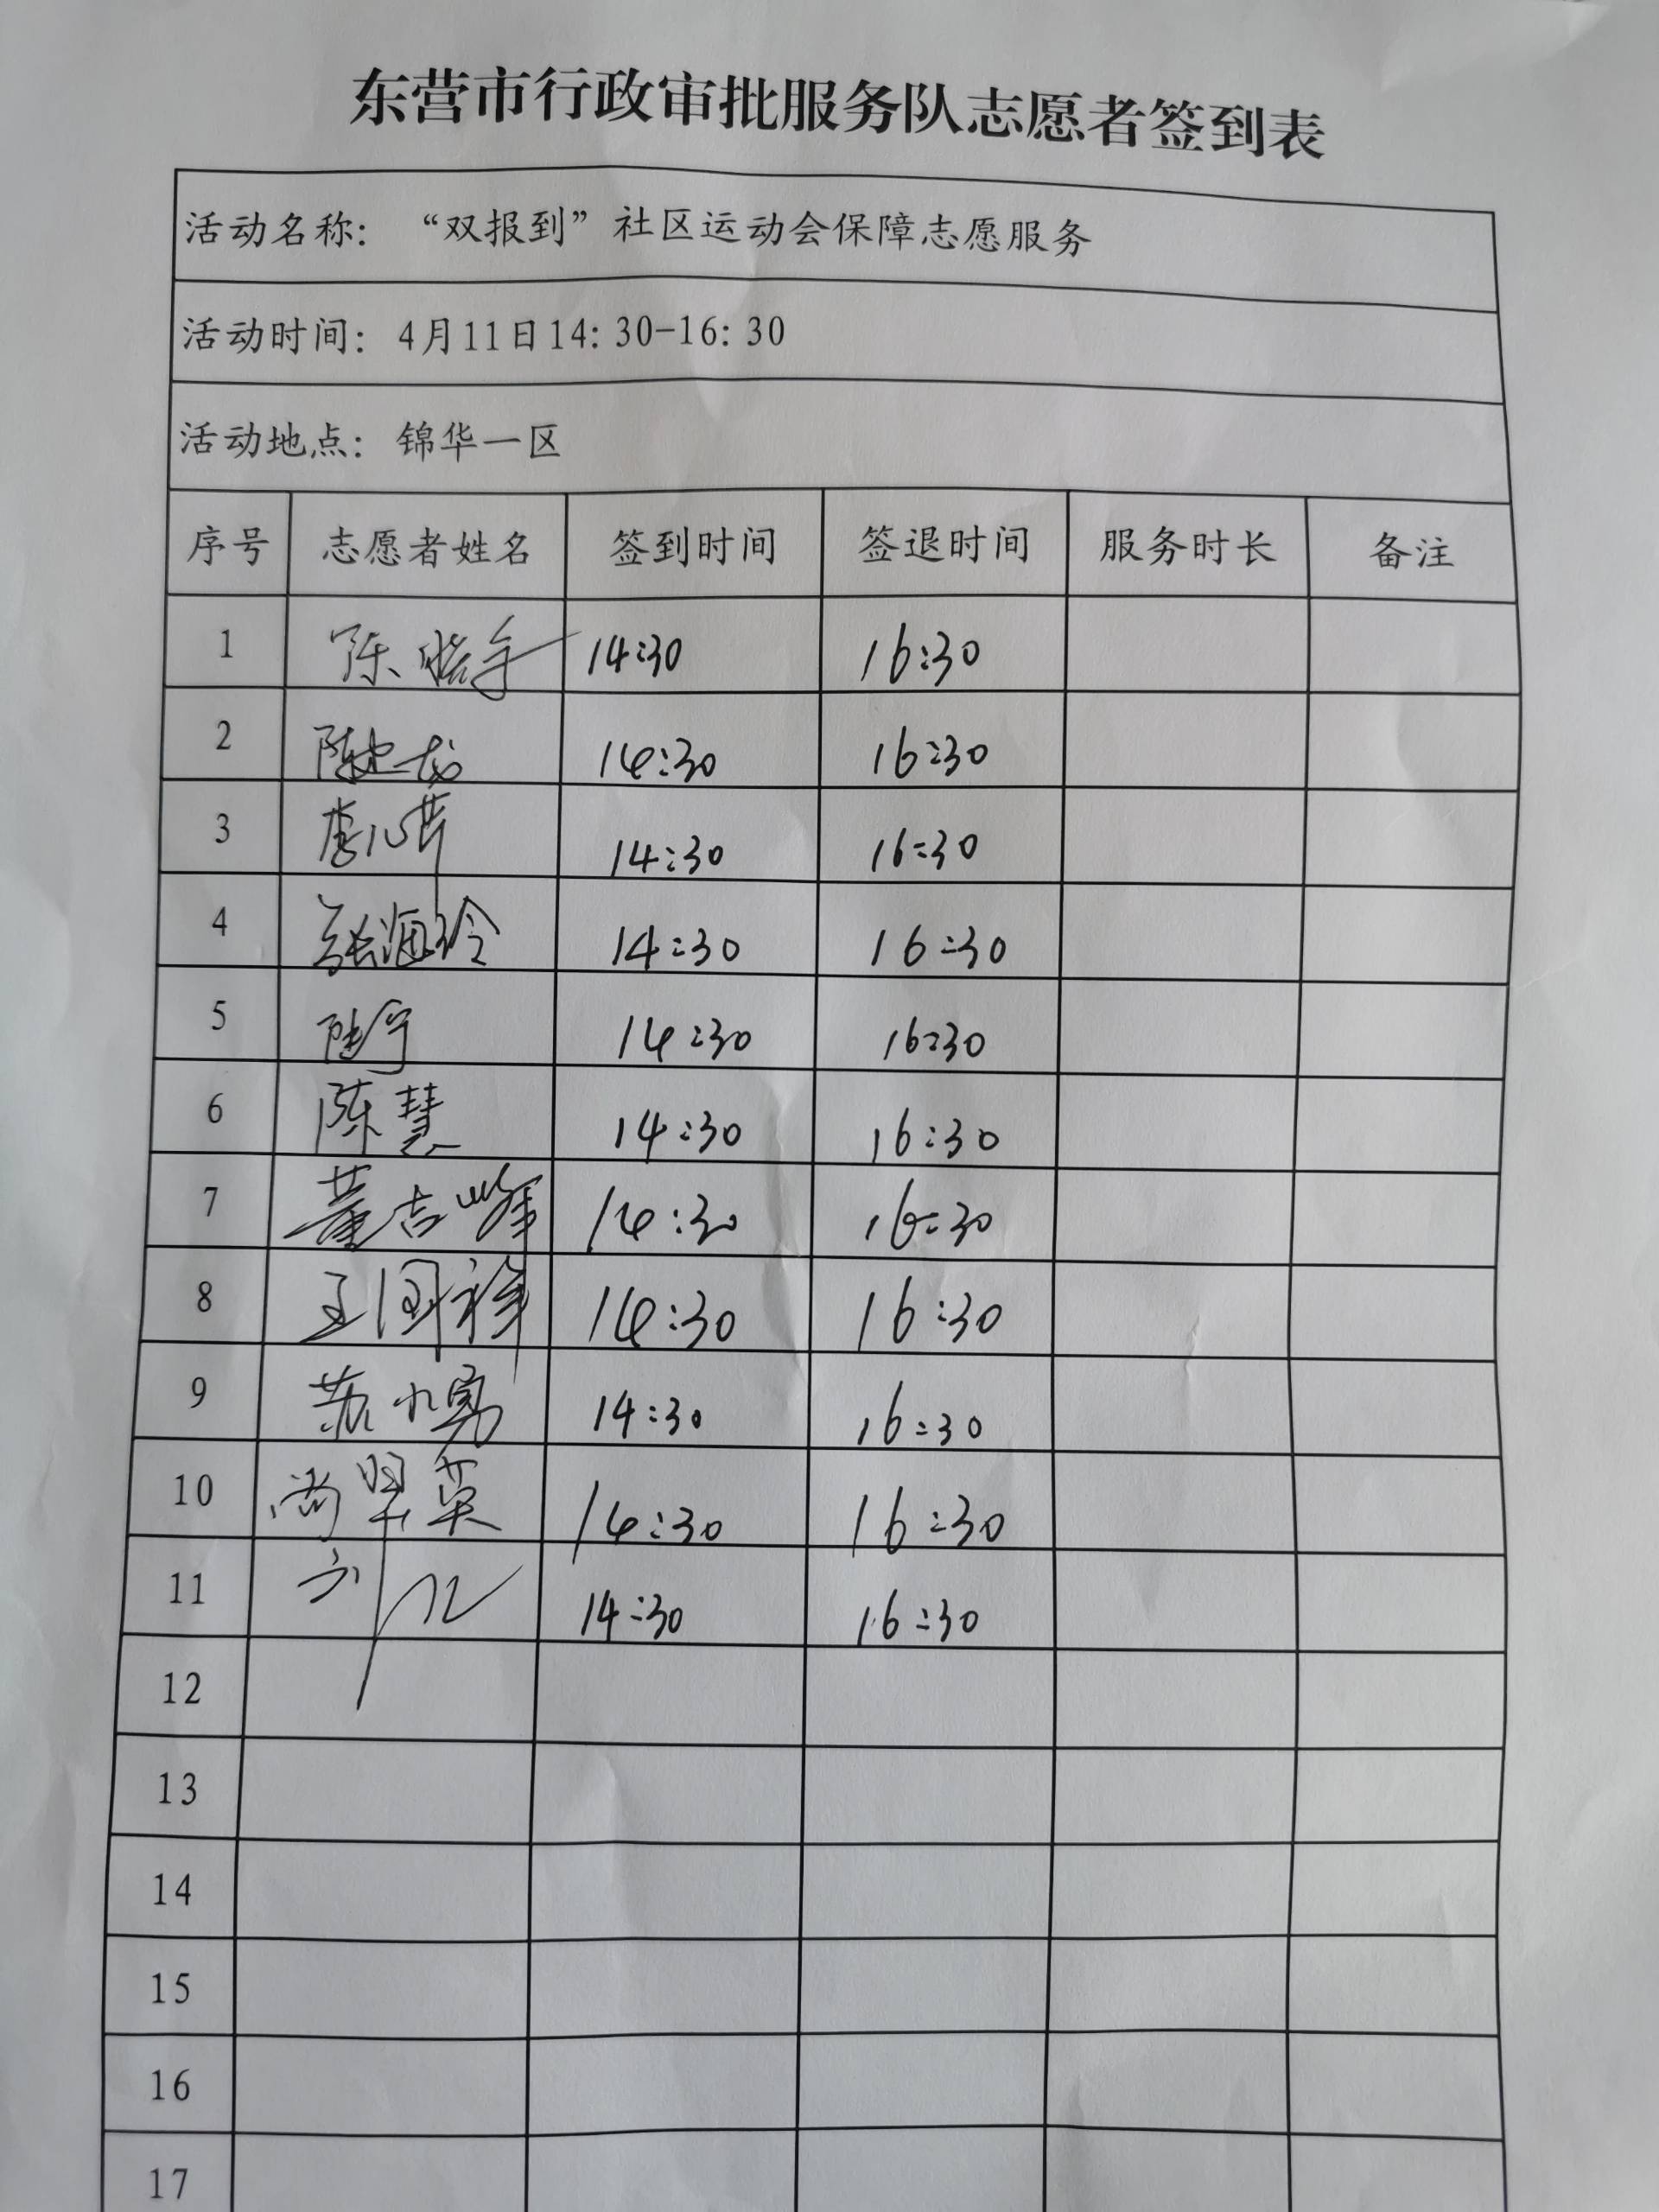 东营市行政审批服务队志愿者签到表
活动名称：“双报到”社区运动会保障志愿服务
活动时间：4月11日14:30-16:30
活动地点：锦华一区
序号 志愿者姓名 签到时间 签退时间 服务时长 备注
1 陈 14:30 16:30
2 陈 14:30 16:30
3 李心芹 14:30 16:30
4 张海玲 14:30 16:30
5 陆宁 14:30 16:30
6 陈慧 14:30 16:30
7 董吉峰 14:30 16:30
8 王国祥 14:30 16:30
9 苏小勇 14:30 16:30
10 尚翠英 14:30 16:30
11 14:30 16:30
12
13
14
15
16
17